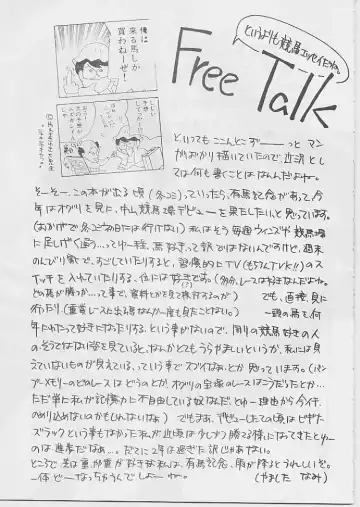 俺は
来る馬しか
買わねーぜ!
というよりも競馬エッセイだね。
Free Talk
といってもここんとこずーーっと マン
ガばかり描いていたので、近況とし
ては何も書くことはなんだよね。
そーそー、この本が出る頃(冬コミ)っていったら、有馬記念があって、今
年はオグリを見に、中山競馬場デビューを果たしたいと思っています。
(おかげで冬コミの日には行けない)私はそう毎週ウィンズや競馬場
に足しげく通う…って程、馬好きって訳ではないんですけど、週末
のんびり家で、すごしていたりすると、習慣的にTV(もちろんTVK!!)のス
イッチを入れていたりする、位には好きです。(多分、レースは好きなんだよね。
どの馬が勝つかって事で、資料とかを見て検討するのが) でも、直接見に
行ったり、(重賞レースに出る馬なんか一度も見たことない) 一頭の馬を何
年もわたって好きだったりする、という事がないので、周りの競馬好きの人
のそうではない姿を見ていると、なんかとてもうらやましいというか、私には見
えていないものが見えている、っていう事でスゴイなぁ、とか思っています。(パン
ブーメモリーのどのレースはどうのとか、オグリの宝塚のレースはこうだったとか…
ただ単に私が記憶力に不自由している奴なんだ、とゆー理由から今イチ、
のめり込めないのかもしれないなよ) でもまあ、デビューしたての頃はビギナー
ズラックという事もなかった私が近頃は少しずつ勝てる様になってきたとゆー
のは進歩だなぁ…。だてに2年は過ぎた訳じゃあない。
ところで、実は重馬場が好きな私は、有馬記念、雨が降るとうれしいぞ。
一体どーなっちゃうんでしょーねー。 (やました なみ)